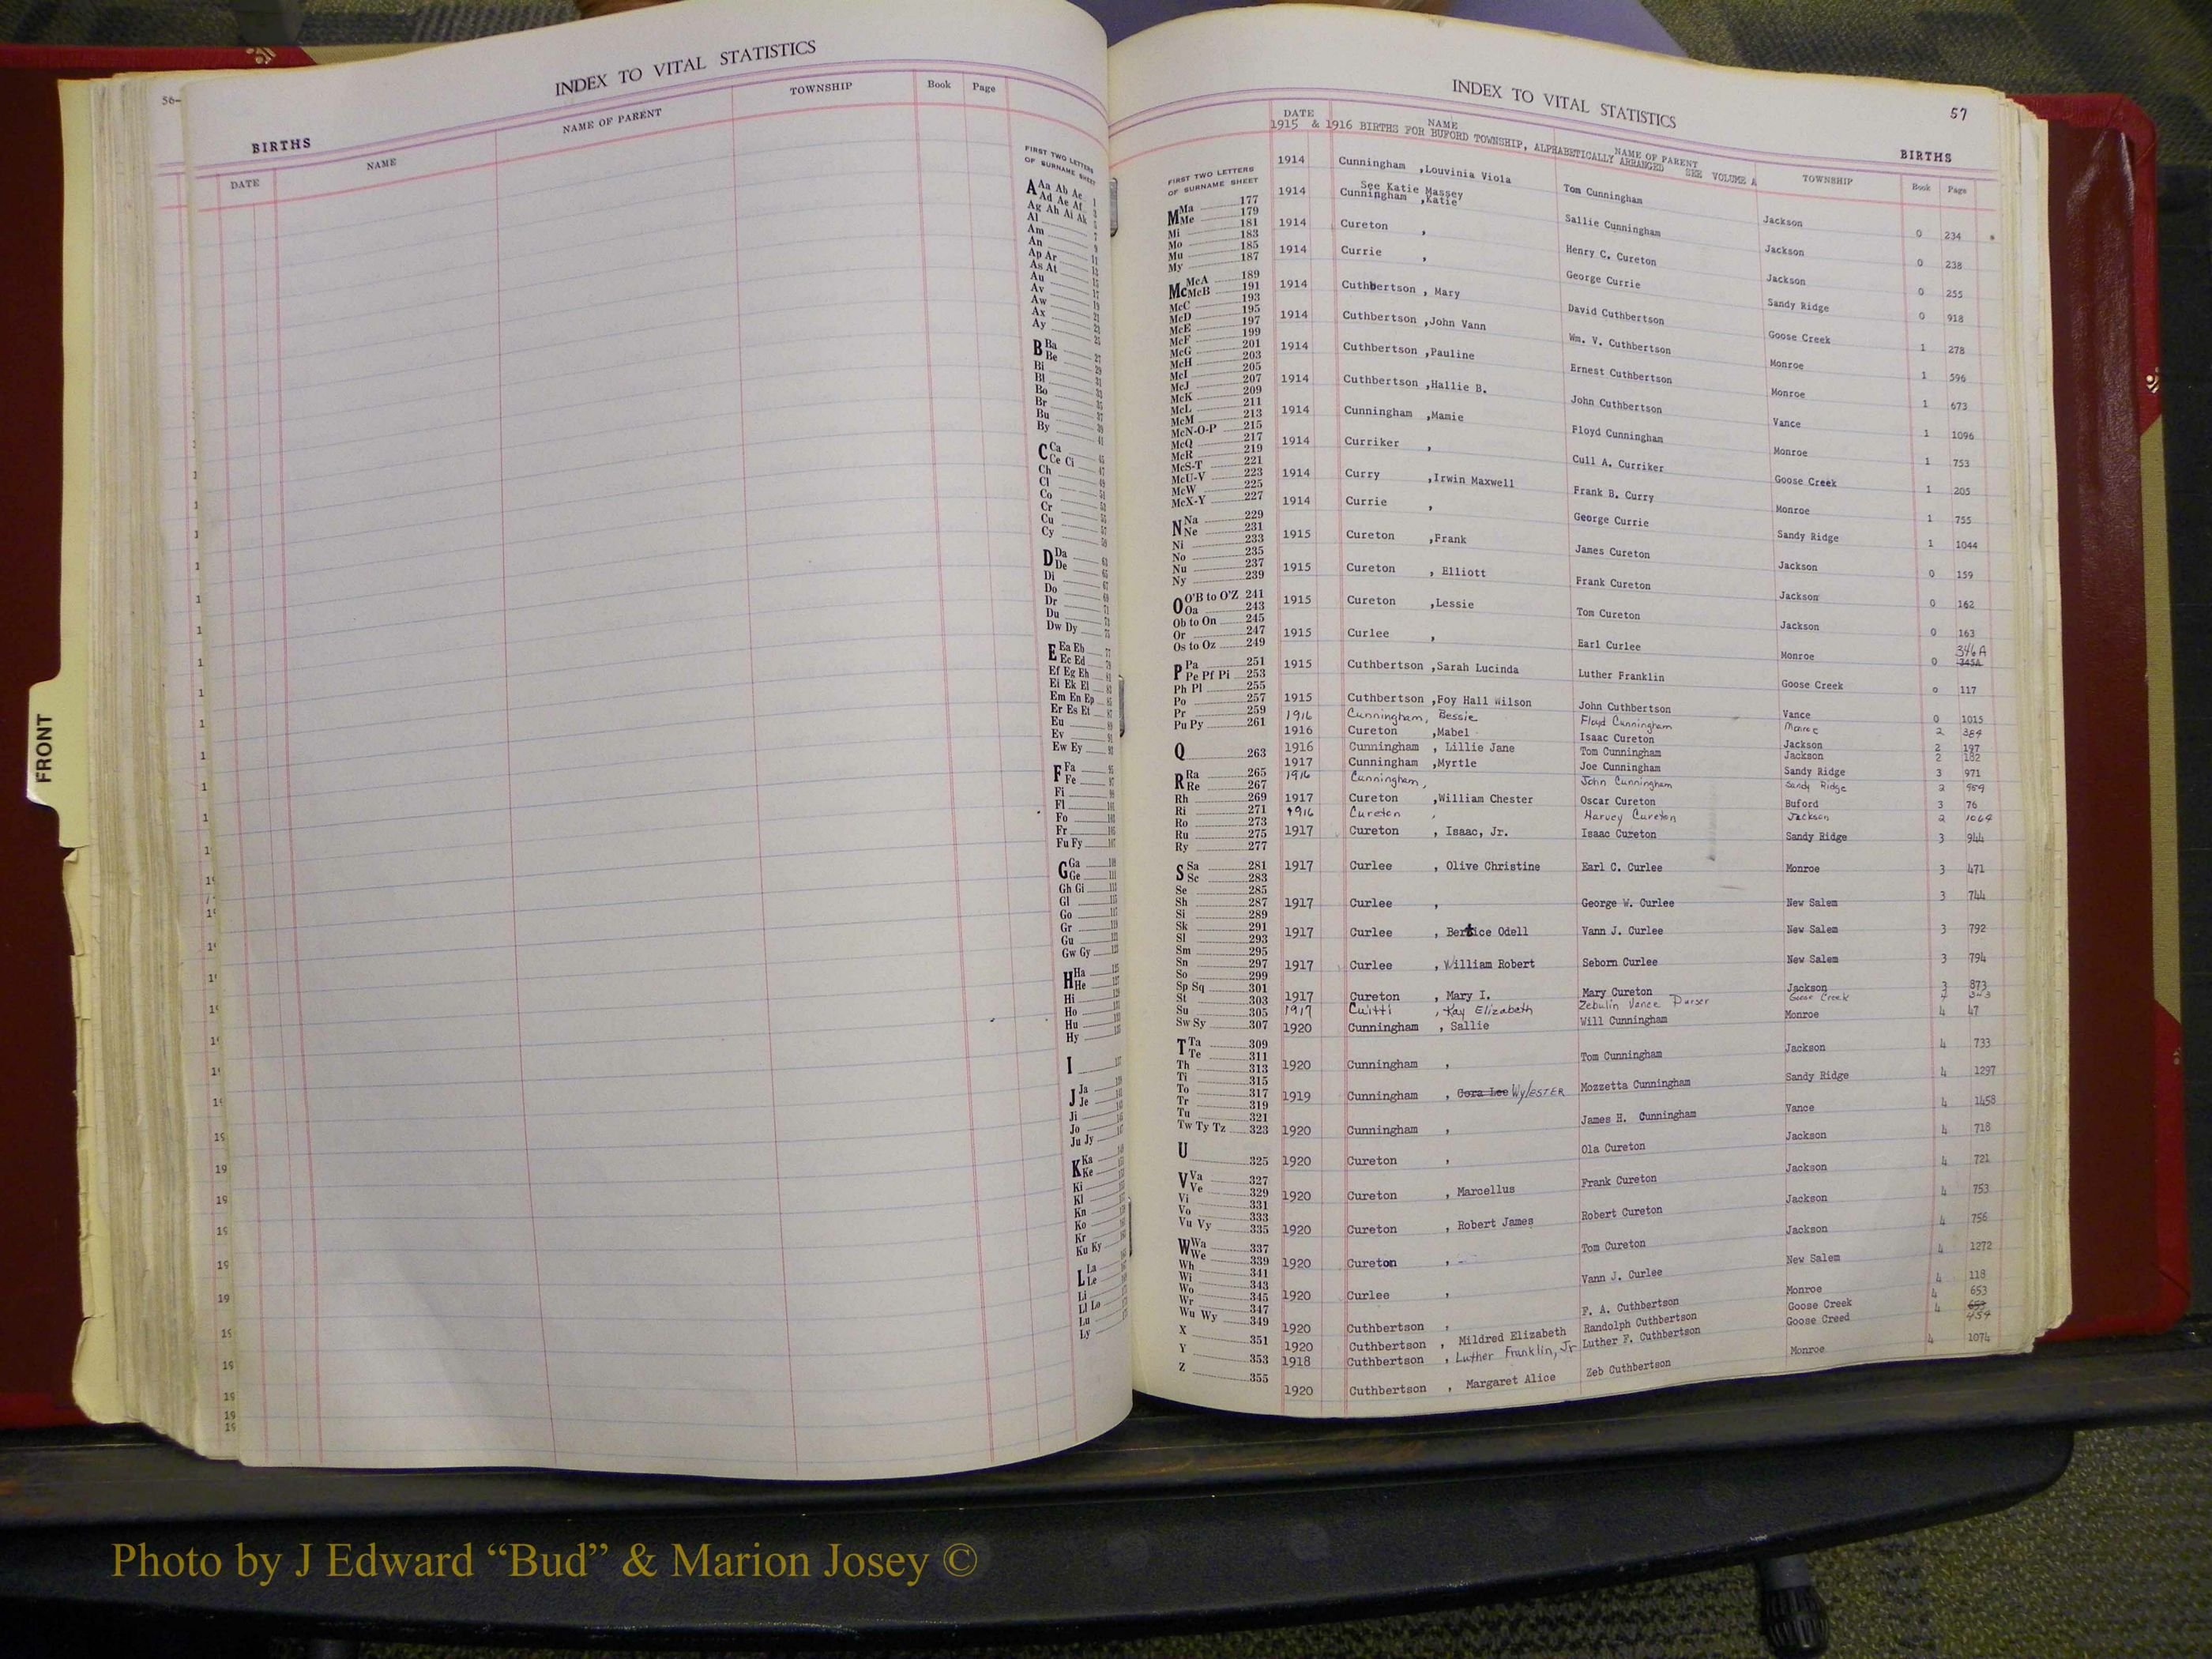 56-
INDEX TO VITAL STATISTICS
BIRTHS
DATE NAME NAME OF PARENT TOWNSHIP Book Page
FIRST TWO LETTERS
OF SURNAME SHEET
A Aa Ab Ac 1
Ad Ae Af 3
Ag Ah Ai Ak 5
Al 7
Am 9
An 11
Ap Ar
As At
Au
Av
Aw
Ax
Ay
B Ba
Be
Bi
Bl
Bo
Br
Bu
By
C Ca
Ce Ci
Ch
Cl
Co
Cr
Cu
Cy
D Da
De
Di
Do
Dr
Du
Dw Dy
E Ea Eb
Ec Ed
Ef Eg Eh
Ei Ek El
Em En Ep
Er Es Et
Eu
Ev
Ew Ey
F Fa
Fe
Fi
Fl
Fo
Fr
Fu Fy
G Ga
Ge
Gh Gi
Gl
Go
Gr
Gu
Gw Gy
H Ha
He
Hi
Ho
Hu
Hy
I
J Ja
Je
Ji
Jo
Ju Jy
K Ka
Ke
Ki
Kl
Kn
Ko
Kr
Ku Ky
L La
Le
Li
Ll Lo
Lu
Ly
FRONT
INDEX TO VITAL STATISTICS 57
BIRTHS
DATE NAME NAME OF PARENT TOWNSHIP Book Page
1915 & 1916 BIRTHS FOR BUFORD TOWNSHIP, ALPHABETICALLY ARRANGED SEE VOLUME A
FIRST TWO LETTERS
OF SURNAME SHEET
M Ma 177
Me 179
Mi 181
Mo 183
Mu 185
My 187
Mc McA 189
McB 191
McC 193
McD 195
McE 197
McF 199
McG 201
McH 203
McI 205
McJ 207
McK 209
McL 211
McM 213
McN-O-P 215
McQ 217
McR 219
McS-T 221
McU-V 223
McW 225
McX-Y 227
N Na 229
Ne 231
Ni 233
No 235
Nu 237
Ny 239
O O'B to O'Z 241
Oa 243
Ob to On 245
Or 247
Os to Oz 249
P Pa 251
Pe Pf Pi 253
Ph Pl 255
Po 257
Pr 259
Pu Py 261
Q 263
R Ra 265
Re 267
Rh 269
Ri 271
Ro 273
Ru 275
Ry 277
S Sa 281
Sc 283
Se 285
Sh 287
Si 289
Sk 291
Sl 293
Sm 295
Sn 297
So 299
Sp Sq 301
St 303
Su 305
Sw Sy 307
T Ta 309
Te 311
Th 313
Ti 315
To 317
Tr 319
Tu 321
Tw Ty Tz 323
U 325
V Va 327
Ve 329
Vi 331
Vo 333
Vu Vy 335
W Wa 337
We 339
Wh 341
Wi 343
Wo 345
Wr 347
Wu Wy 349
X 351
Y 353
Z 355
1914 Cunningham ,Louvinia Viola Tom Cunningham Jackson 0 234
See Katie Massey
1914 Cunningham ,Katie Sallie Cunningham Jackson 0 238
1914 Cureton , Henry C. Cureton Jackson 0 255
1914 Currie , George Currie Sandy Ridge 0 918
1914 Cuthbertson , Mary David Cuthbertson Goose Creek 1 278
1914 Cuthbertson ,John Vann Wm. V. Cuthbertson Monroe 1 596
1914 Cuthbertson ,Pauline Ernest Cuthbertson Monroe 1 673
1914 Cuthbertson ,Hallie B. John Cuthbertson Vance 1 1096
1914 Cunningham ,Mamie Floyd Cunningham Monroe 1 753
1914 Curriker , Cull A. Curriker Goose Creek 1 205
1914 Curry ,Irwin Maxwell Frank B. Curry Monroe 1 755
1914 Currie , George Currie Sandy Ridge 1 1044
1915 Cureton ,Frank James Cureton Jackson 0 159
1915 Cureton , Elliott Frank Cureton Jackson 0 162
1915 Cureton ,Lessie Tom Cureton Jackson 0 163
1915 Curlee , Earl Curlee Monroe 0 346A 345A
1915 Cuthbertson ,Sarah Lucinda Luther Franklin Goose Creek 0 117
1915 Cuthbertson ,Foy Hall Wilson John Cuthbertson Vance 0 1015
1916 Cunningham, Bessie Floyd Cunningham Monroe 2 384
1916 Cureton ,Mabel Isaac Cureton Jackson 2 197
1916 Cunningham , Lillie Jane Tom Cunningham Jackson 2 182
1917 Cunningham ,Myrtle Joe Cunningham Sandy Ridge 3 971
1916 Cunningham, John Cunningham Sandy Ridge 2 989
1917 Cureton ,William Chester Oscar Cureton Buford 3 76
1916 Cureton , Harvey Cureton Jackson 2 1064
1917 Cureton , Isaac, Jr. Isaac Cureton Sandy Ridge 3 944
1917 Curlee , Olive Christine Earl C. Curlee Monroe 3 471
1917 Curlee , George W. Curlee New Salem 3 744
1917 Curlee , Bertice Odell Vann J. Curlee New Salem 3 792
1917 Curlee , William Robert Seborn Curlee New Salem 3 794
1917 Cureton , Mary I. Mary Cureton Jackson 3 873
1917 Cuitti , Kay Elizabeth Zebulin Vance Purser Goose Creek 4 343
1920 Cunningham , Sallie Will Cunningham Monroe 4 47
1920 Cunningham , Tom Cunningham Jackson 4 733
1919 Cunningham , Cora Lee Wylester Mozzetta Cunningham Sandy Ridge 4 1297
1920 Cunningham , James H. Cunningham Vance 4 1458
1920 Cureton , Ola Cureton Jackson 4 718
1920 Cureton , Marcellus Frank Cureton Jackson 4 721
1920 Cureton , Robert James Robert Cureton Jackson 4 753
1920 Cureton , Tom Cureton Jackson 4 756
1920 Curlee , Vann J. Curlee New Salem 4 1272
1920 Cuthbertson , F. A. Cuthbertson Monroe 4 118
1920 Cuthbertson , Mildred Elizabeth Randolph Cuthbertson Goose Creek 4 653
1918 Cuthbertson , Luther Franklin, Jr Luther F. Cuthbertson Goose Creed 4 653 454
1920 Cuthbertson , Margaret Alice Zeb Cuthbertson Monroe 4 1074
Photo by J Edward “Bud” & Marion Josey ©